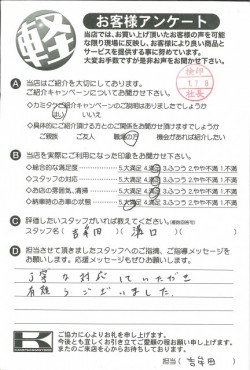 軽
お客様アンケート
当店では、お買い上げ頂いたお客様の声を可能
な限り現場に反映し、お客様により良い商品と
サービスを提供する事に努めています。
大変お手数ですが是非お声をお聞かせ下さい。
検印
社長
A 当店はご紹介を大切にしております。
ご紹介キャンペーンについてお聞かせ下さい。
◇カミタケご紹介キャンペーンのご説明はありましたでしょうか
はい いいえ
◇具体的にご紹介頂ける方とのご関係をお聞かせ頂けますでしょうか
ご親族 ご友人 職場の方 機会があれば紹介したい
B 当店を実際にご利用になった印象をお聞かせ下さい。
◇総合的な満足度 5.大満足 4.満足 3.ふつう 2.やや不満 1.不満
◇スタッフの対応 5.大満足 4.満足 3.ふつう 2.やや不満 1.不満
◇お店の雰囲気、清掃 5.大満足 4.満足 3.ふつう 2.やや不満 1.不満
◇納車時のお車の状態 5.大満足 4.満足 3.ふつう 2.やや不満 1.不満
C 評価したいスタッフがいれば教えてください。(複数回答可)
スタッフ名( 吉年田 )( 溝口 )( )
D 担当させて頂きましたスタッフへのご指摘、ご指導メッセージを
お願いします。応援メッセージもぜひお願いします。
丁寧な対応していただき
有難うございました。
K
ご協力に心よりお礼を申し上げます。
今後とも宜しくお引き立てご愛顧の程お願い申し上げます。
またのご来店を心からお待ちしております。
担当( 吉年田 )